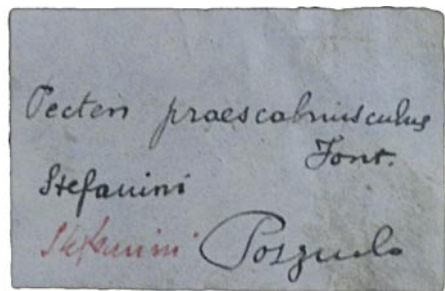 Pecten praescabriusculus
Font.
Stefanini
Stefanini Pozuelo